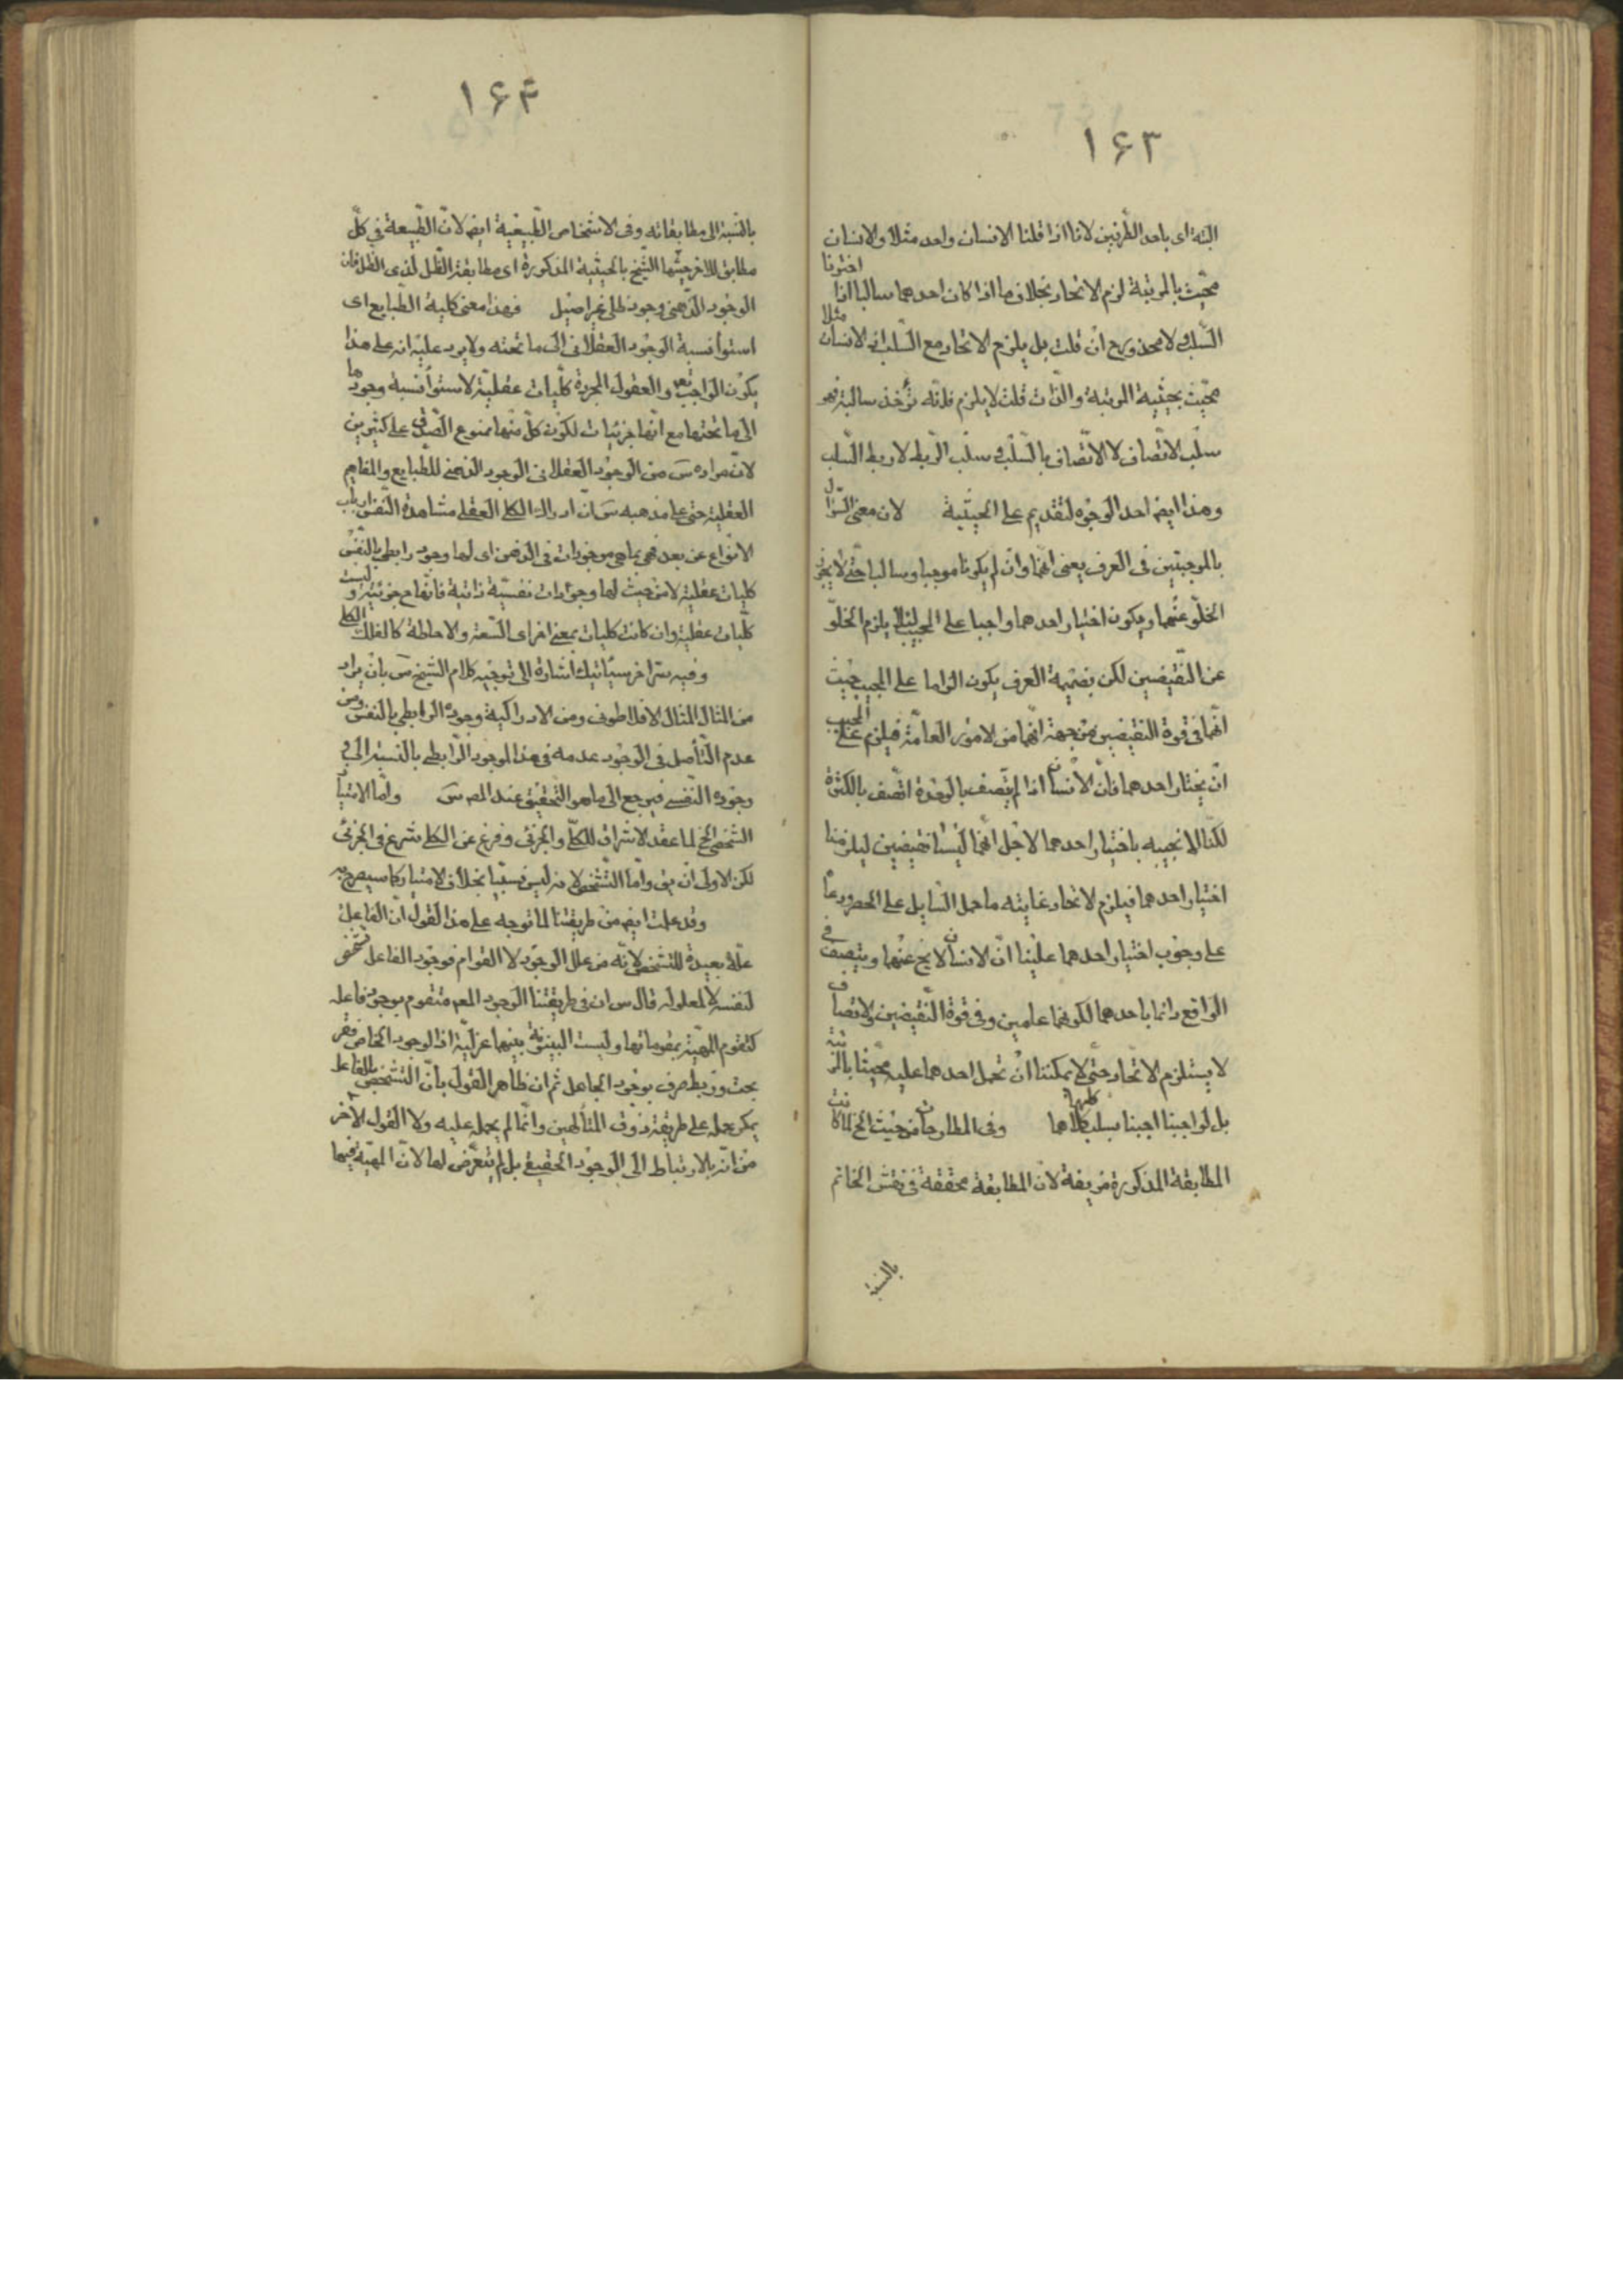 ١۶٣
البتة اى باحد الطّرفين لانا اذا قلنا الانسان واحد مثلا والانسان
محيّث بالمرتبة لزم الاتحاد بخلاف ما اذا كان احدهما سالبا اذا اخترنا
السّلب ولا محذور ح ان قلت بل يلزم الاتحاد مع السّلب اذ الانسان مثلا
محيّث بحيثية المرتبة والذّات قلت لا يلزم فانّه تؤخذ سالبة فهو
سلب الاتّصاف لا الاتّصاف بالسّلب و سلب الرّبط لا ربط السّلب
وهذا ايضا احد الوجوه لتقديم على الحيثيّة لان معنى السّؤال
بالموجبتين فى العرف يعنى انّهما وان لم يكونا موجبا وسالبا حتّى لا يجوز
الخلوّ عنهما ويكون اختيار احدهما واجبا على المجيب لئلا يلزم الخلوّ
عن النّقيضين لكن بضميمة العرف يكون الزاما على المجيب حيث
انّهما فى قوة النقيضين من جهة انّهما من الامور العامّة فيلزم على المجيب
ان يختار احدهما فانّ الانسان اذا لم يتّصف بالوحدة اتّصف بالكثرة
لكنّا لا نجيبه باختيار احدهما لاجل انّهما ليسا نقيضين ليلزمنا
اختيار احدهما فيلزم الاتحاد غايته ما حمل السّايل على الحصر ودعا
على وجوب اختيار احدهما علينا انّ الانسان لا يخ عنهما ويتصف فى
الواقع دائما باحدهما لكونهما عامين وفى قوة النّقيضين والاتصاف
لا يستلزم الاتّحاد حتّى لا يمكننا ان نحمل احدهما عليه محيّثا بالمرتبة
بل لو اجبنا اجبنا بسلب كلاهما كليهما وفى المطارحات من حيث الخ لما كانت
المطابقة المذكورة مزيفة لانّ المطابقة محققة فى نقش الخاتم
بالنسبة
١۶۴
بالنّسبة الى مطابقاته وفى الاشخاص الطّبيعية ايضا لانّ الطّبيعة فى كلّ
مطابق للاخر حيّثها الشّيخ بالحيثية المذكورة اى مطابقة الظّل لذى الظّل فان
الوجود الذّهنى وجود ظلى غير اصيل فهذا معنى كلية الطّبايع اى
استوا نسبة الوجود العقلانى الى ما تحته ولا يرد عليه انه على هذا
يكون الواجب تعه والعقول المجردة كلّيات عقليّة لاستواء نسبة وجودها
الى ما تحتها مع انّها جزئيات لكون كلّ منها ممنوع الصّدق على كثيرين
لانّ مراده س من الوجود العقلانى الوجود الذهنى للطّبايع والمفاهيم
العقلية حتى على مذهبه س انّ ادراك الكلى العقلى مشاهدة النّفس ارباب
الانواع عن بعد فهى بما هى موجودات فى الذهن اى لها وجود رابطى بالنّفس
كليات عقلية لا من حيث لها وجودات نفسيّة ذاتية فانّها ح جزئية وليست
كلّيات عقلية وان كانت كليات بمعنى اخر اى السّعة والاحاطة كالفلك الكلى
وفيه سرّ اخر سيأتيك اشارة الى توجيه كلام الشّيخ س بان يراد
من المثال المثال الافلاطونى ومن الادراكية وجوده الرابطى بالنفس ومن
عدم التّأصل فى الوجود عدمه فى هذا الوجود الرّابطى بالنسبة الى
وجوده النّفسى فيرجع الى ما هو التّحقيق عند المص س وامّا الامتياز
الشّخصى الخ لما عقد الاشراق للكلّى والجزئى وفرغ عن الكلى شرع فى الجزئى
لكن الاولى ان يق وامّا التّشخّص لانه ليس نسبيّا بخلاف الامتياز كما سيصرح به
وقد علمت ايضا من طريقتنا لما توجه على هذا القول انّ الفاعل
علّة بعيدة للتشخّص لانّه من علل الوجود لا القوام فوجود الفاعل تشخص
لنفسه لا لمعلوله قال س ان فى طريقتنا الوجود المعه متقوم بوجود فاعله
كتقوم المهيّة بمقوماتها وليست البينونة بينهما عزليّة اذ الوجود الخاص فقر
بحت وربط صرف بوجود الجاعل ثم ان ظاهر القول بانّ التشخّص بالفاعل
يمكن حمله على طريقة ذوق المتألهين وانّما لم يحمله عليه ولا القول الاخر
من انّه بالارتباط الى الوجود الحقيقى بل لم يتعرّض لها لانّ المهيّة فيها